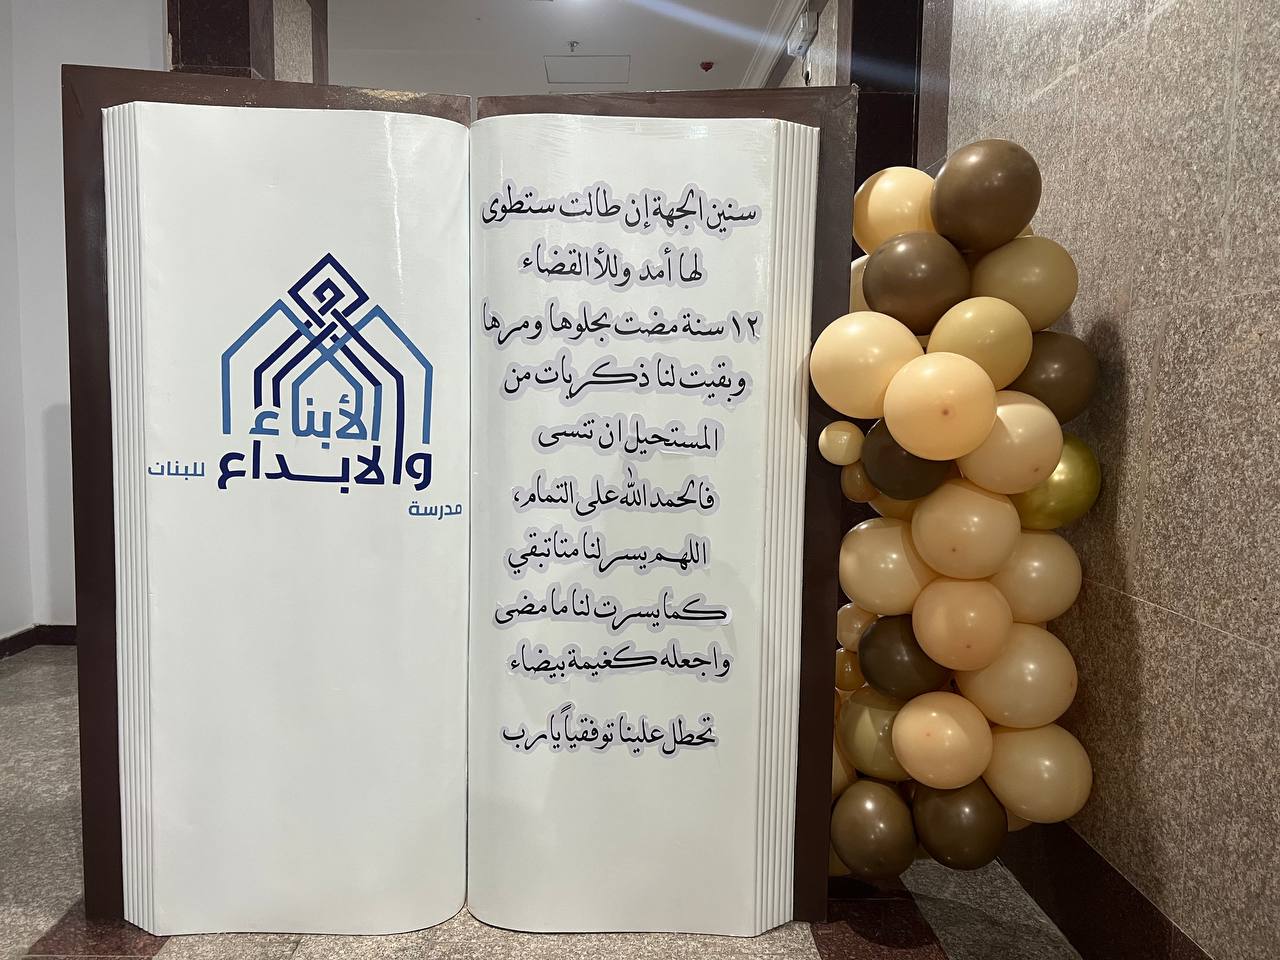 سنين الجهة إن طالت ستطوى
لها أمد وللأ القضاء
١٢ سنة مضت بحلوها ومرها
وبقيت لنا ذكريات من
المستحيل ان تنسى
فالحمد الله على التمام،
اللهم يسر لنا متا تبقي
كما يسرت لنا ما مضى
واجعله كغيمة بيضاء
تحطل علينا توفقياً يارب
الأبناء
والابداع
للبنات
مدرسة